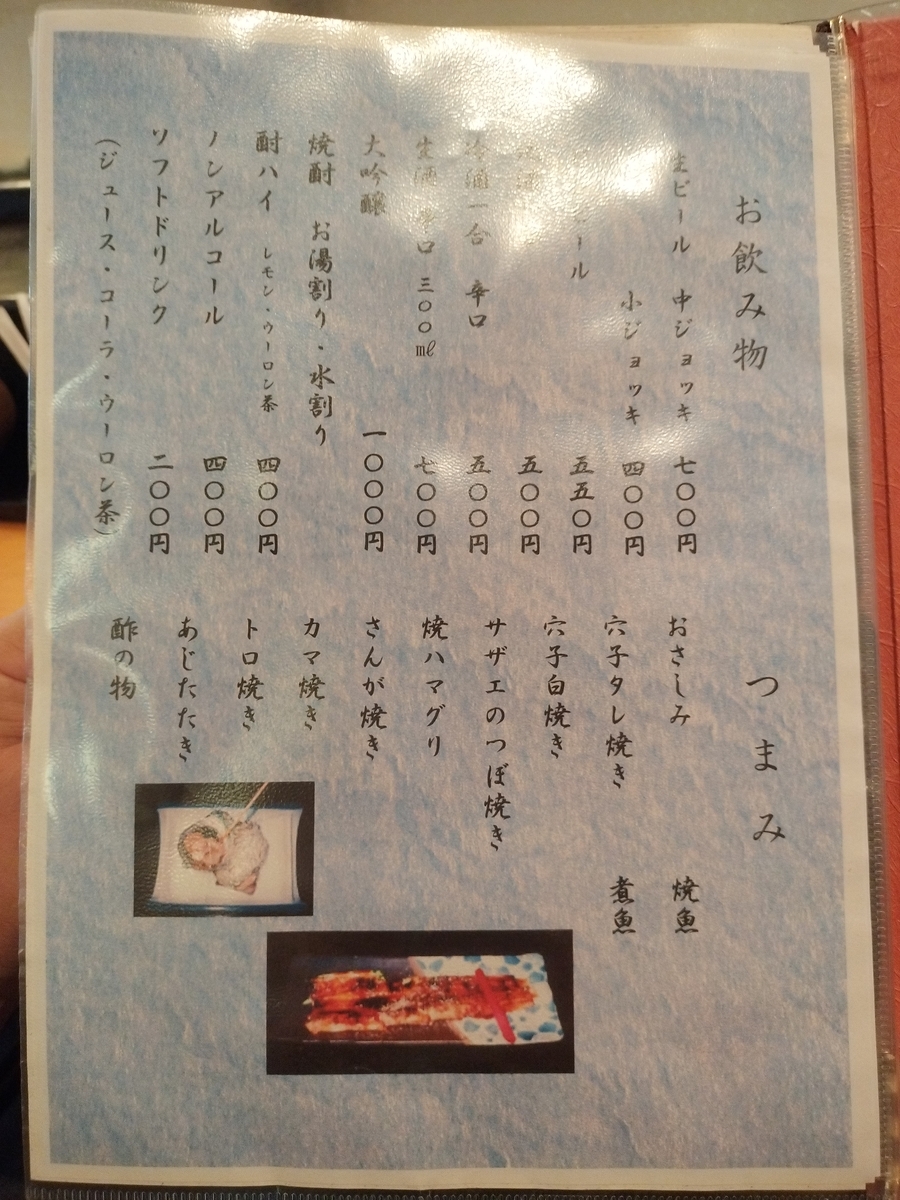 お飲み物
生ビール 中ジョッキ 七〇〇円
小ジョッキ 四〇〇円
ビール 五五〇円
五〇〇円
冷酒一合 辛口 五〇〇円
生酒 辛口 三〇〇㎖ 七〇〇円
大吟醸 一〇〇〇円
焼酎 お湯割り・水割り
酎ハイ レモン・ウーロン茶 四〇〇円
ノンアルコール 四〇〇円
ソフトドリンク 二〇〇円
(ジュース・コーラ・ウーロン茶)
つまみ
おさしみ 焼魚
穴子タレ焼き 煮魚
穴子白焼き
サザエのつぼ焼き
焼ハマグリ
さんが焼き
カマ焼き
トロ焼き
あじたたき
酢の物